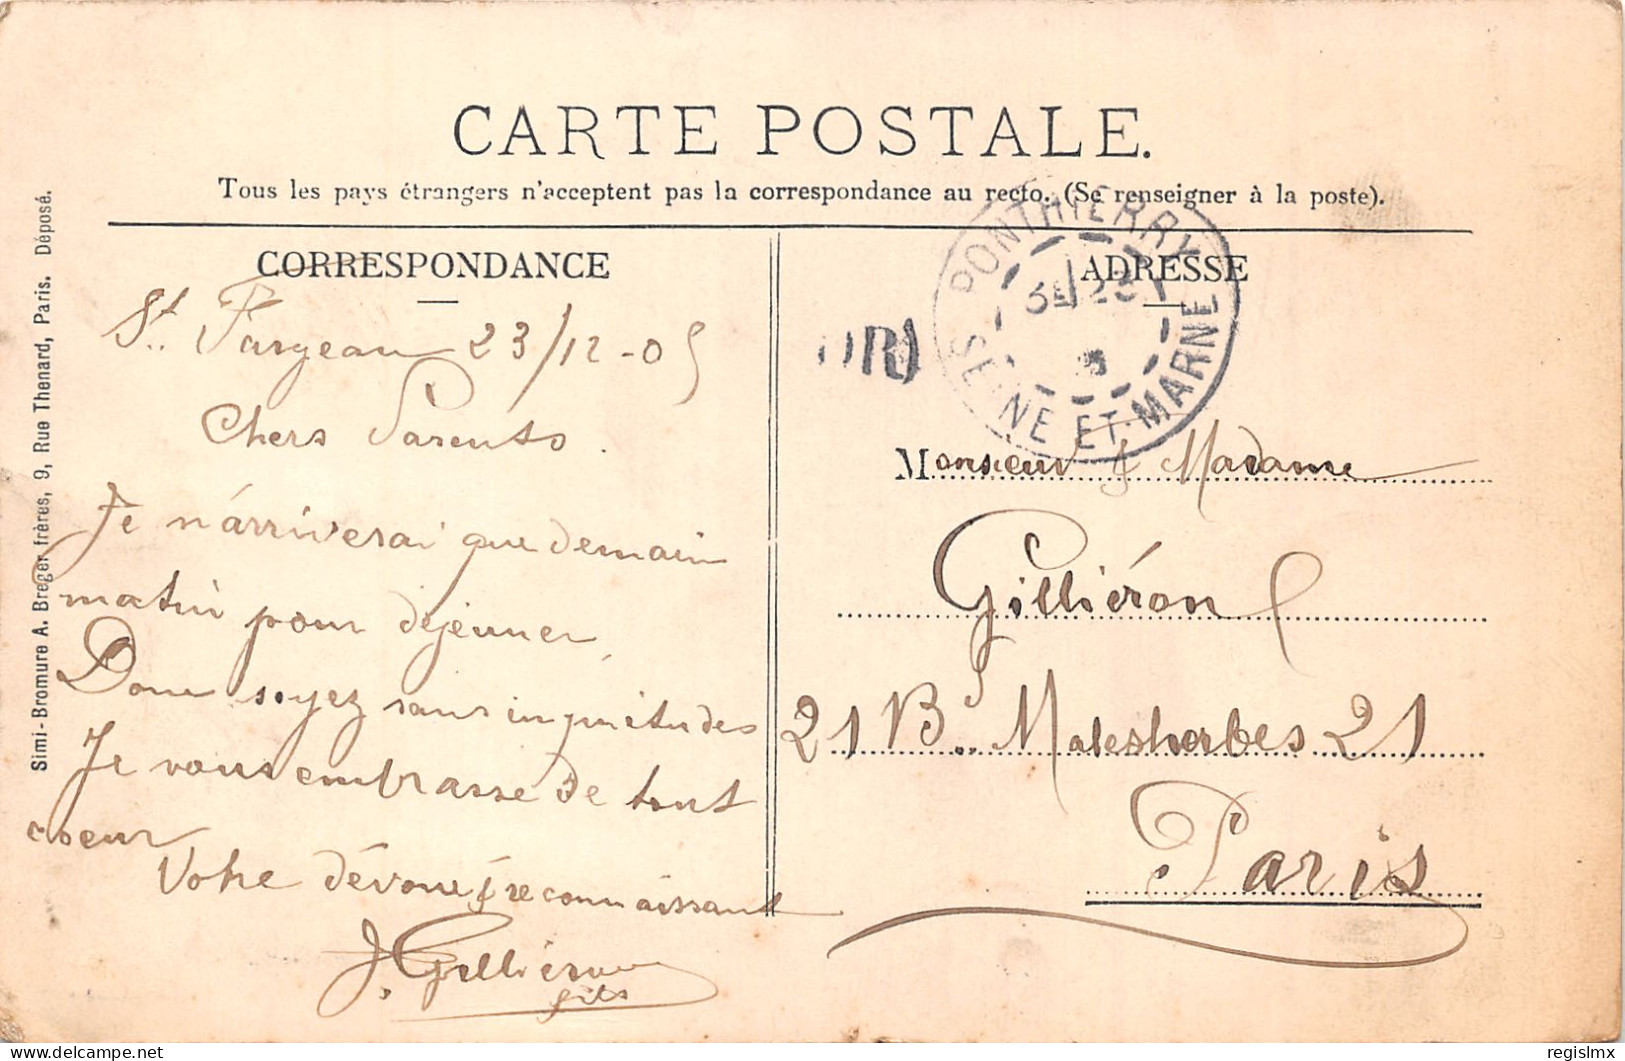 CARTE POSTALE.
Tous les pays étrangers n'acceptent pas la correspondance au recto. (Se renseigner à la poste).
Simi-Bromure A. Breger frères, 9, Rue Thenard, Paris. Déposé.
CORRESPONDANCE
St. Fargeau 23/12-05
Chers Parents.
Je n'arriverai que demain
matin pour déjeuner
Donc soyez sans inquiétudes
Je vous embrasse de tout
coeur
Votre dévoué & reconnaissant
J. Gilliéron
fils
ADRESSE
PONTHIERRY
23
SEINE ET MARNE
OR
Monsieur & Madame
Gilliéron
21 Bd. Malesherbes 21
Paris
regislmx
delcampe.net